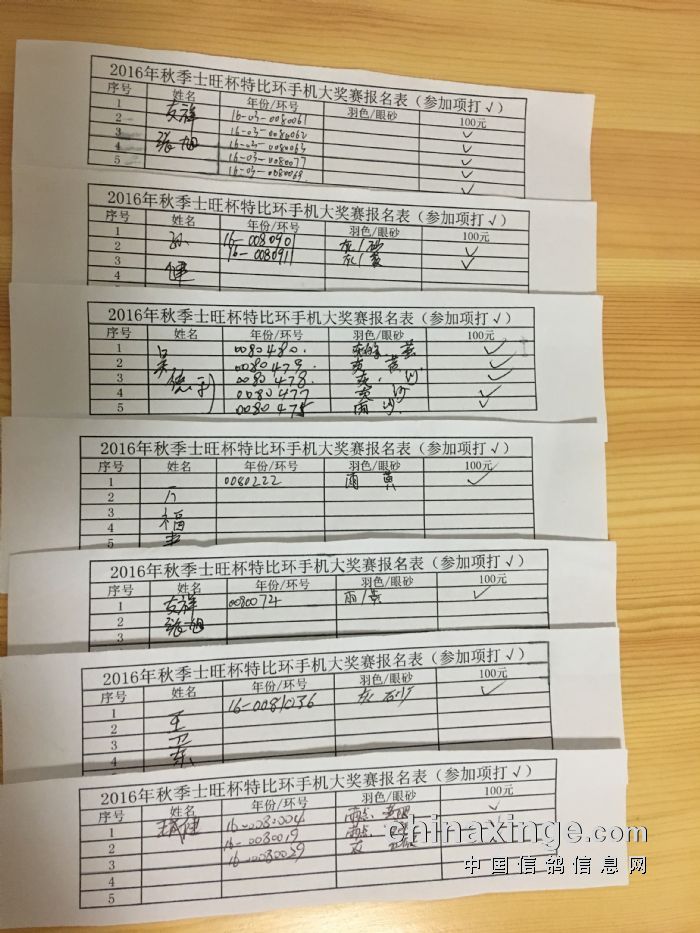 2016年秋季士旺杯特比环手机大奖赛报名表（参加项打√）
序号 姓名 年份/环号 羽色/眼砂 100元
1 友祥 16-03-0080061 √
2 16-03-0080062 √
3 张旭 16-03-0080063 √
4 16-03-0080077 √
5 16-03-0080069 √
2016年秋季士旺杯特比环手机大奖赛报名表（参加项打√）
序号 姓名 年份/环号 羽色/眼砂 100元
1 孙 16-0080901 灰/砂 √
2 16-0080911 灰/黄 √
3 健
4
2016年秋季士旺杯特比环手机大奖赛报名表（参加项打√）
序号 姓名 年份/环号 羽色/眼砂 100元
1 吴 0080480. √
2 0080479. 灰 黄 √
3 德利 0080478. 灰. 沙. √
4 0080477 灰 沙 √
5 008047 雨 沙. √
2016年秋季士旺杯特比环手机大奖赛报名表（参加项打√）
序号 姓名 年份/环号 羽色/眼砂 100元
1 万 0080222 雨 黄 √
2
3 福
4
5
2016年秋季士旺杯特比环手机大奖赛报名表（参加项打√）
序号 姓名 年份/环号 羽色/眼砂 100元
1 友祥 0080074 雨/黄 √
2 张旭
3
2016年秋季士旺杯特比环手机大奖赛报名表（参加项打√）
序号 姓名 年份/环号 羽色/眼砂 100元
1 王 16-0081236 灰 砂 √
2 卫
3 东
4
2016年秋季士旺杯特比环手机大奖赛报名表（参加项打√）
序号 姓名 年份/环号 羽色/眼砂 100元
1 16-0080004 雨点 √
2 16-0080019 雨点 √
3 16-0080029 灰 √
4
5
chinaxinge.com
中国信鸽信息网